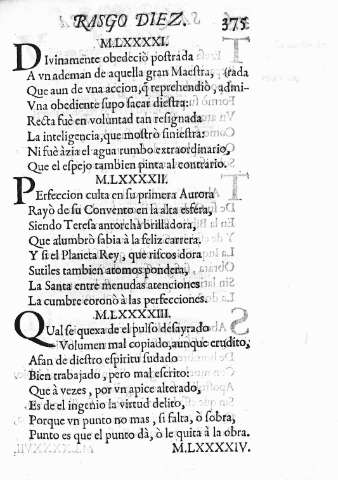 RASGO DIEZ. 375
M.LXXXXI.
DIvinamente obedeciò postrada
A vn ademan de aquella gran Maestra, (rada
Que aun de vna accion, q̃ reprehendiò, admi-
Vna obediente supo sacar diestra:
Recta fuè en voluntad tan resignada
La inteligencia, que mostrò siniestra:
Ni fuè àzia el agua rumbo extraordinario,
Que el espejo tambien pinta al contrario.
M.LXXXXII.
PErfeccion culta en su primera Aurora
Rayò de su Convento en la alta esfera,
Siendo Teresa antorcha brilladora,
Que alumbrò sabia à la feliz carrera.
Y si el Planeta Rey, que riscos dora
Sutiles tambien atomos pondera,
La Santa entre menudas atenciones
La cumbre coronò à las perfecciones.
M.LXXXXIII.
QUal se quexa de el pulso desayrado
Volumen mal copiado, aunque erudito,
Afan de diestro espiritu sudado
Bien trabajado, pero mal escrito:
Que à vezes, por vn apice alterado,
Es de el ingenio la virtud delito,
Porque vn punto no mas, si falta, ò sobra,
Punto es que el punto dà, ò le quita à la obra.
M.LXXXXIV.